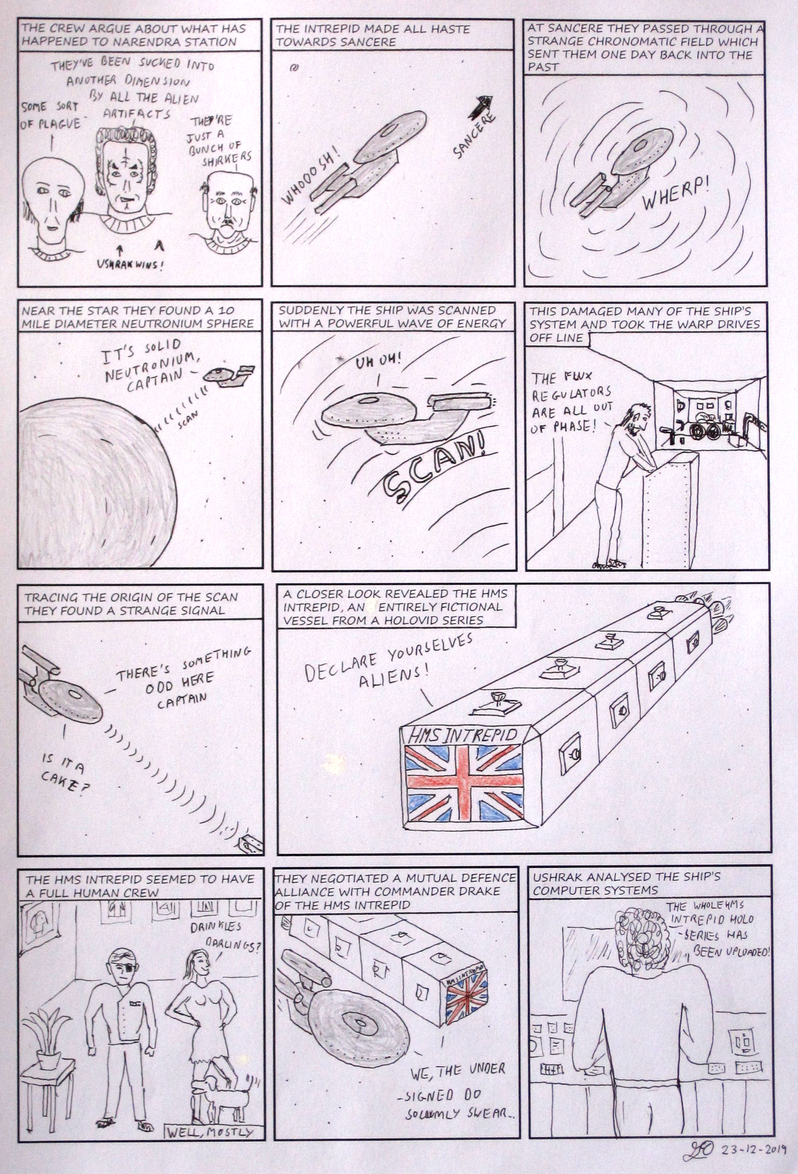 THE CREW ARGUE ABOUT WHAT HAS
HAPPENED TO NARENDRA STATION
THEY'VE BEEN SUCKED INTO
ANOTHER DIMENSION
BY ALL THE ALIEN
ARTIFACTS
SOME SORT
OF PLAGUE
THEY'RE
JUST A
BUNCH OF
SHIRKERS
USHRAK WINS!
THE INTREPID MADE ALL HASTE
TOWARDS SANCERE
WHOOOSH!
SANCERE
AT SANCERE THEY PASSED THROUGH A
STRANGE CHRONOMATIC FIELD WHICH
SENT THEM ONE DAY BACK INTO THE
PAST
WHERP!
NEAR THE STAR THEY FOUND A 10
MILE DIAMETER NEUTRONIUM SPHERE
IT'S SOLID
NEUTRONIUM,
CAPTAIN
SCAN
SUDDENLY THE SHIP WAS SCANNED
WITH A POWERFUL WAVE OF ENERGY
UH OH!
SCAN!
THIS DAMAGED MANY OF THE SHIP'S
SYSTEM AND TOOK THE WARP DRIVES
OFF LINE
THE FLUX
REGULATORS
ARE ALL OUT
OF PHASE!
TRACING THE ORIGIN OF THE SCAN
THEY FOUND A STRANGE SIGNAL
THERE'S SOMETHING
ODD HERE
CAPTAIN
IS IT A
CAKE?
A CLOSER LOOK REVEALED THE HMS
INTREPID, AN ENTIRELY FICTIONAL
VESSEL FROM A HOLOVID SERIES
DECLARE YOURSELVES
ALIENS!
HMS INTREPID
THE HMS INTREPID SEEMED TO HAVE
A FULL HUMAN CREW
DRINKLES
DARLINGS?
WELL, MOSTLY
THEY NEGOTIATED A MUTUAL DEFENCE
ALLIANCE WITH COMMANDER DRAKE
OF THE HMS INTREPID
HMS INTREPID
WE, THE UNDER
-SIGNED DO
SOLUMLY SWEAR..
USHRAK ANALYSED THE SHIP'S
COMPUTER SYSTEMS
THE WHOLE HMS
INTREPID HOLO
-SERIES HAS
BEEN UPLOADED!
23-12-2019